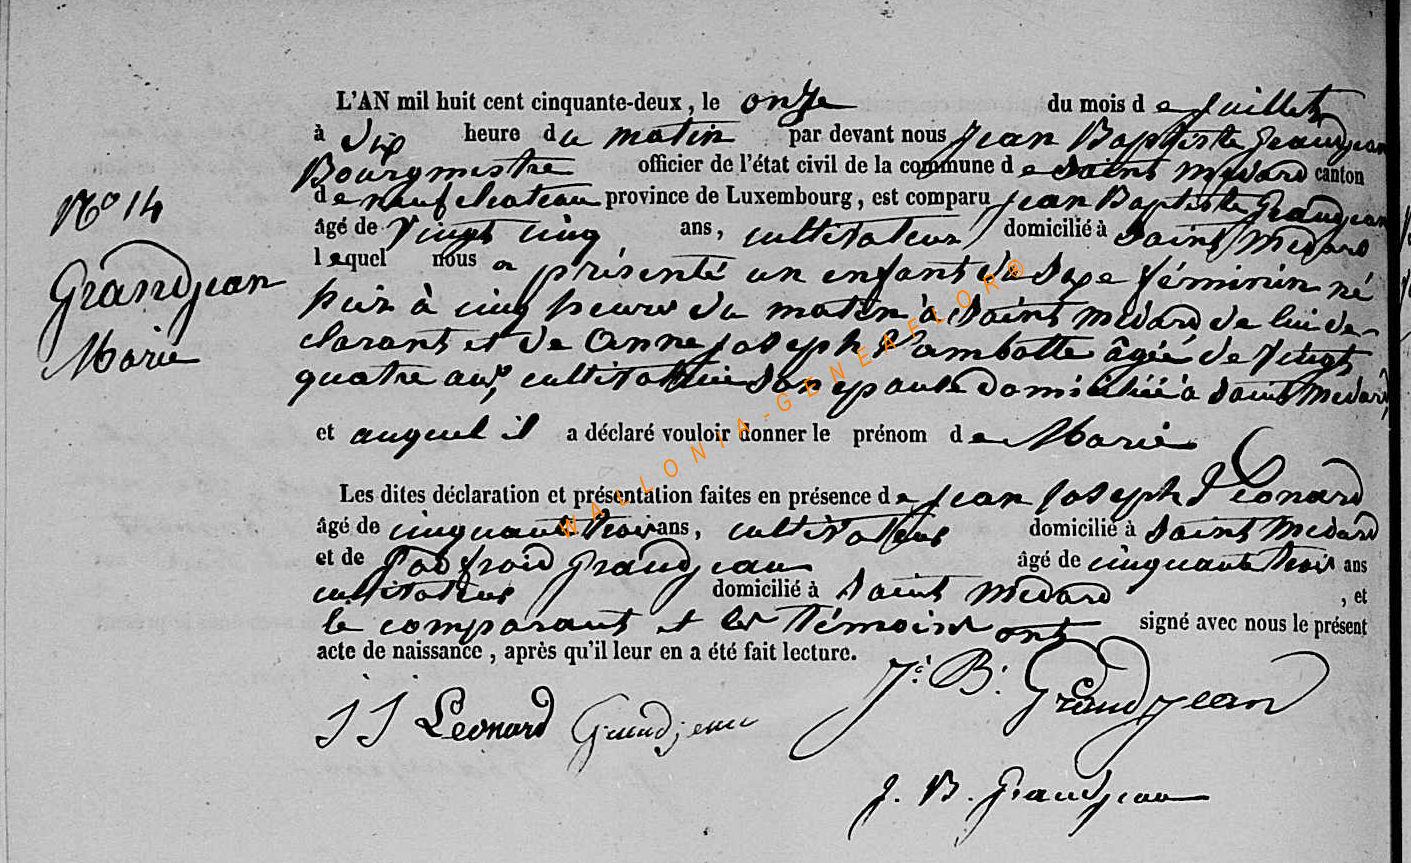 L'AN mil huit cent cinquante-deux, le onze du mois de Juillet
à Dix heure du matin par devant nous Jean Baptiste Grandjean
Bourgmestre officier de l'état civil de la commune de Saint Médard canton
de neufchateau province de Luxembourg, est comparu Jean Baptiste Grandjean
âgé de vingt cinq ans, cultivateur domicilié à Saint Médard
lequel nous a présenté un enfant du sexe féminin né
hier à cinq heures du matin à Saint Médard de lui dé-
clarant et de Anne Joseph Vambotte âgée de vingt
quatre ans, cultivatrice son epouse domiciliée à Saint Médard,
et auquel il a déclaré vouloir donner le prénom de Marie
Les dites déclaration et présentation faites en présence de Jean Joseph Léonard
âgé de cinquante trois ans, cultivateur domicilié à Saint Médard
et de Godfroid Grandjean âgé de cinquante trois ans
cultivateur domicilié à Saint Médard, et
le comparant et les témoins ont signé avec nous le présent
acte de naissance, après qu'il leur en a été fait lecture.
No 14
Grandjean
Marie
J J Léonard Grandjean J. B. Grandjean
J. B. Grandjean
WALLONIA-GENEAFLOR®